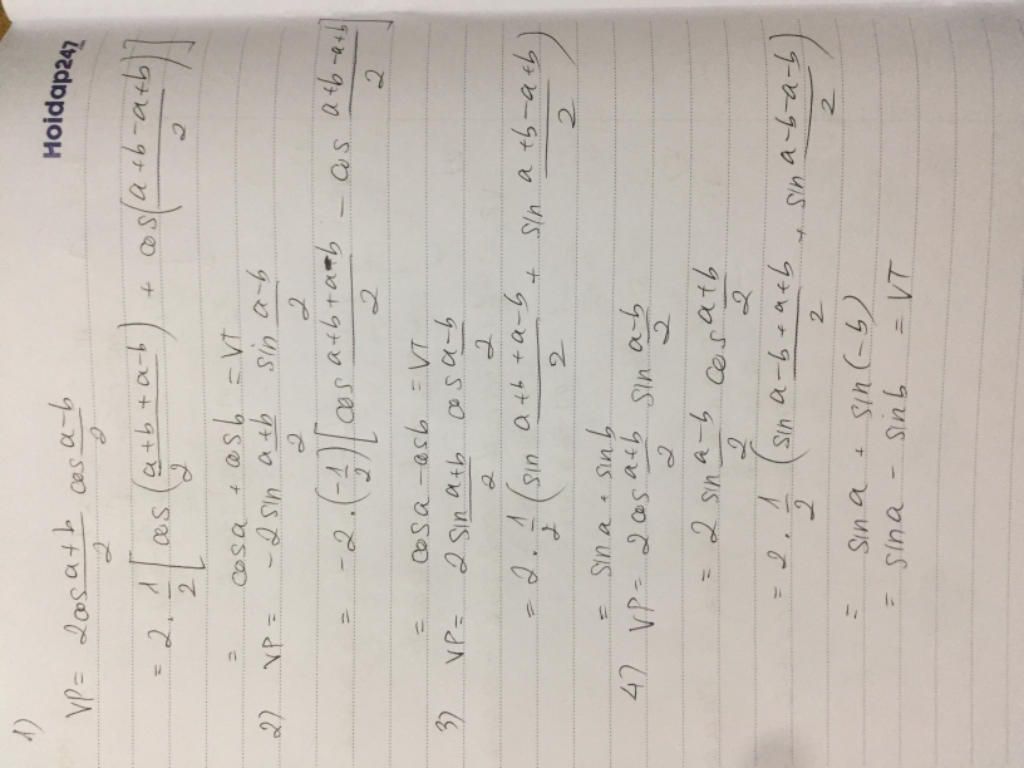 Hoidap247
1)
VP = 2cos a+b/2 cos a-b/2
= 2 . 1/2 [cos (a+b+a-b/2) + cos (a+b-a+b/2)]
= cosa + cosb = VT
2) VP = -2sin a+b/2 sin a-b/2
= -2 . (-1/2) [cos a+b+a-b/2 - cos a+b-a+b/2]
= cosa - cosb = VT
3) VP = 2 sin a+b/2 cos a-b/2
= 2 . 1/2 (sin a+b+a-b/2 + sin a+b-a+b/2)
= sin a + sin b
4) VP = 2 cos a+b/2 sin a-b/2
= 2 sin a-b/2 cos a+b/2
= 2 . 1/2 (sin a-b+a+b/2 + sin a-b-a-b/2)
= sin a + sin (-b)
= sin a - sin b = VT